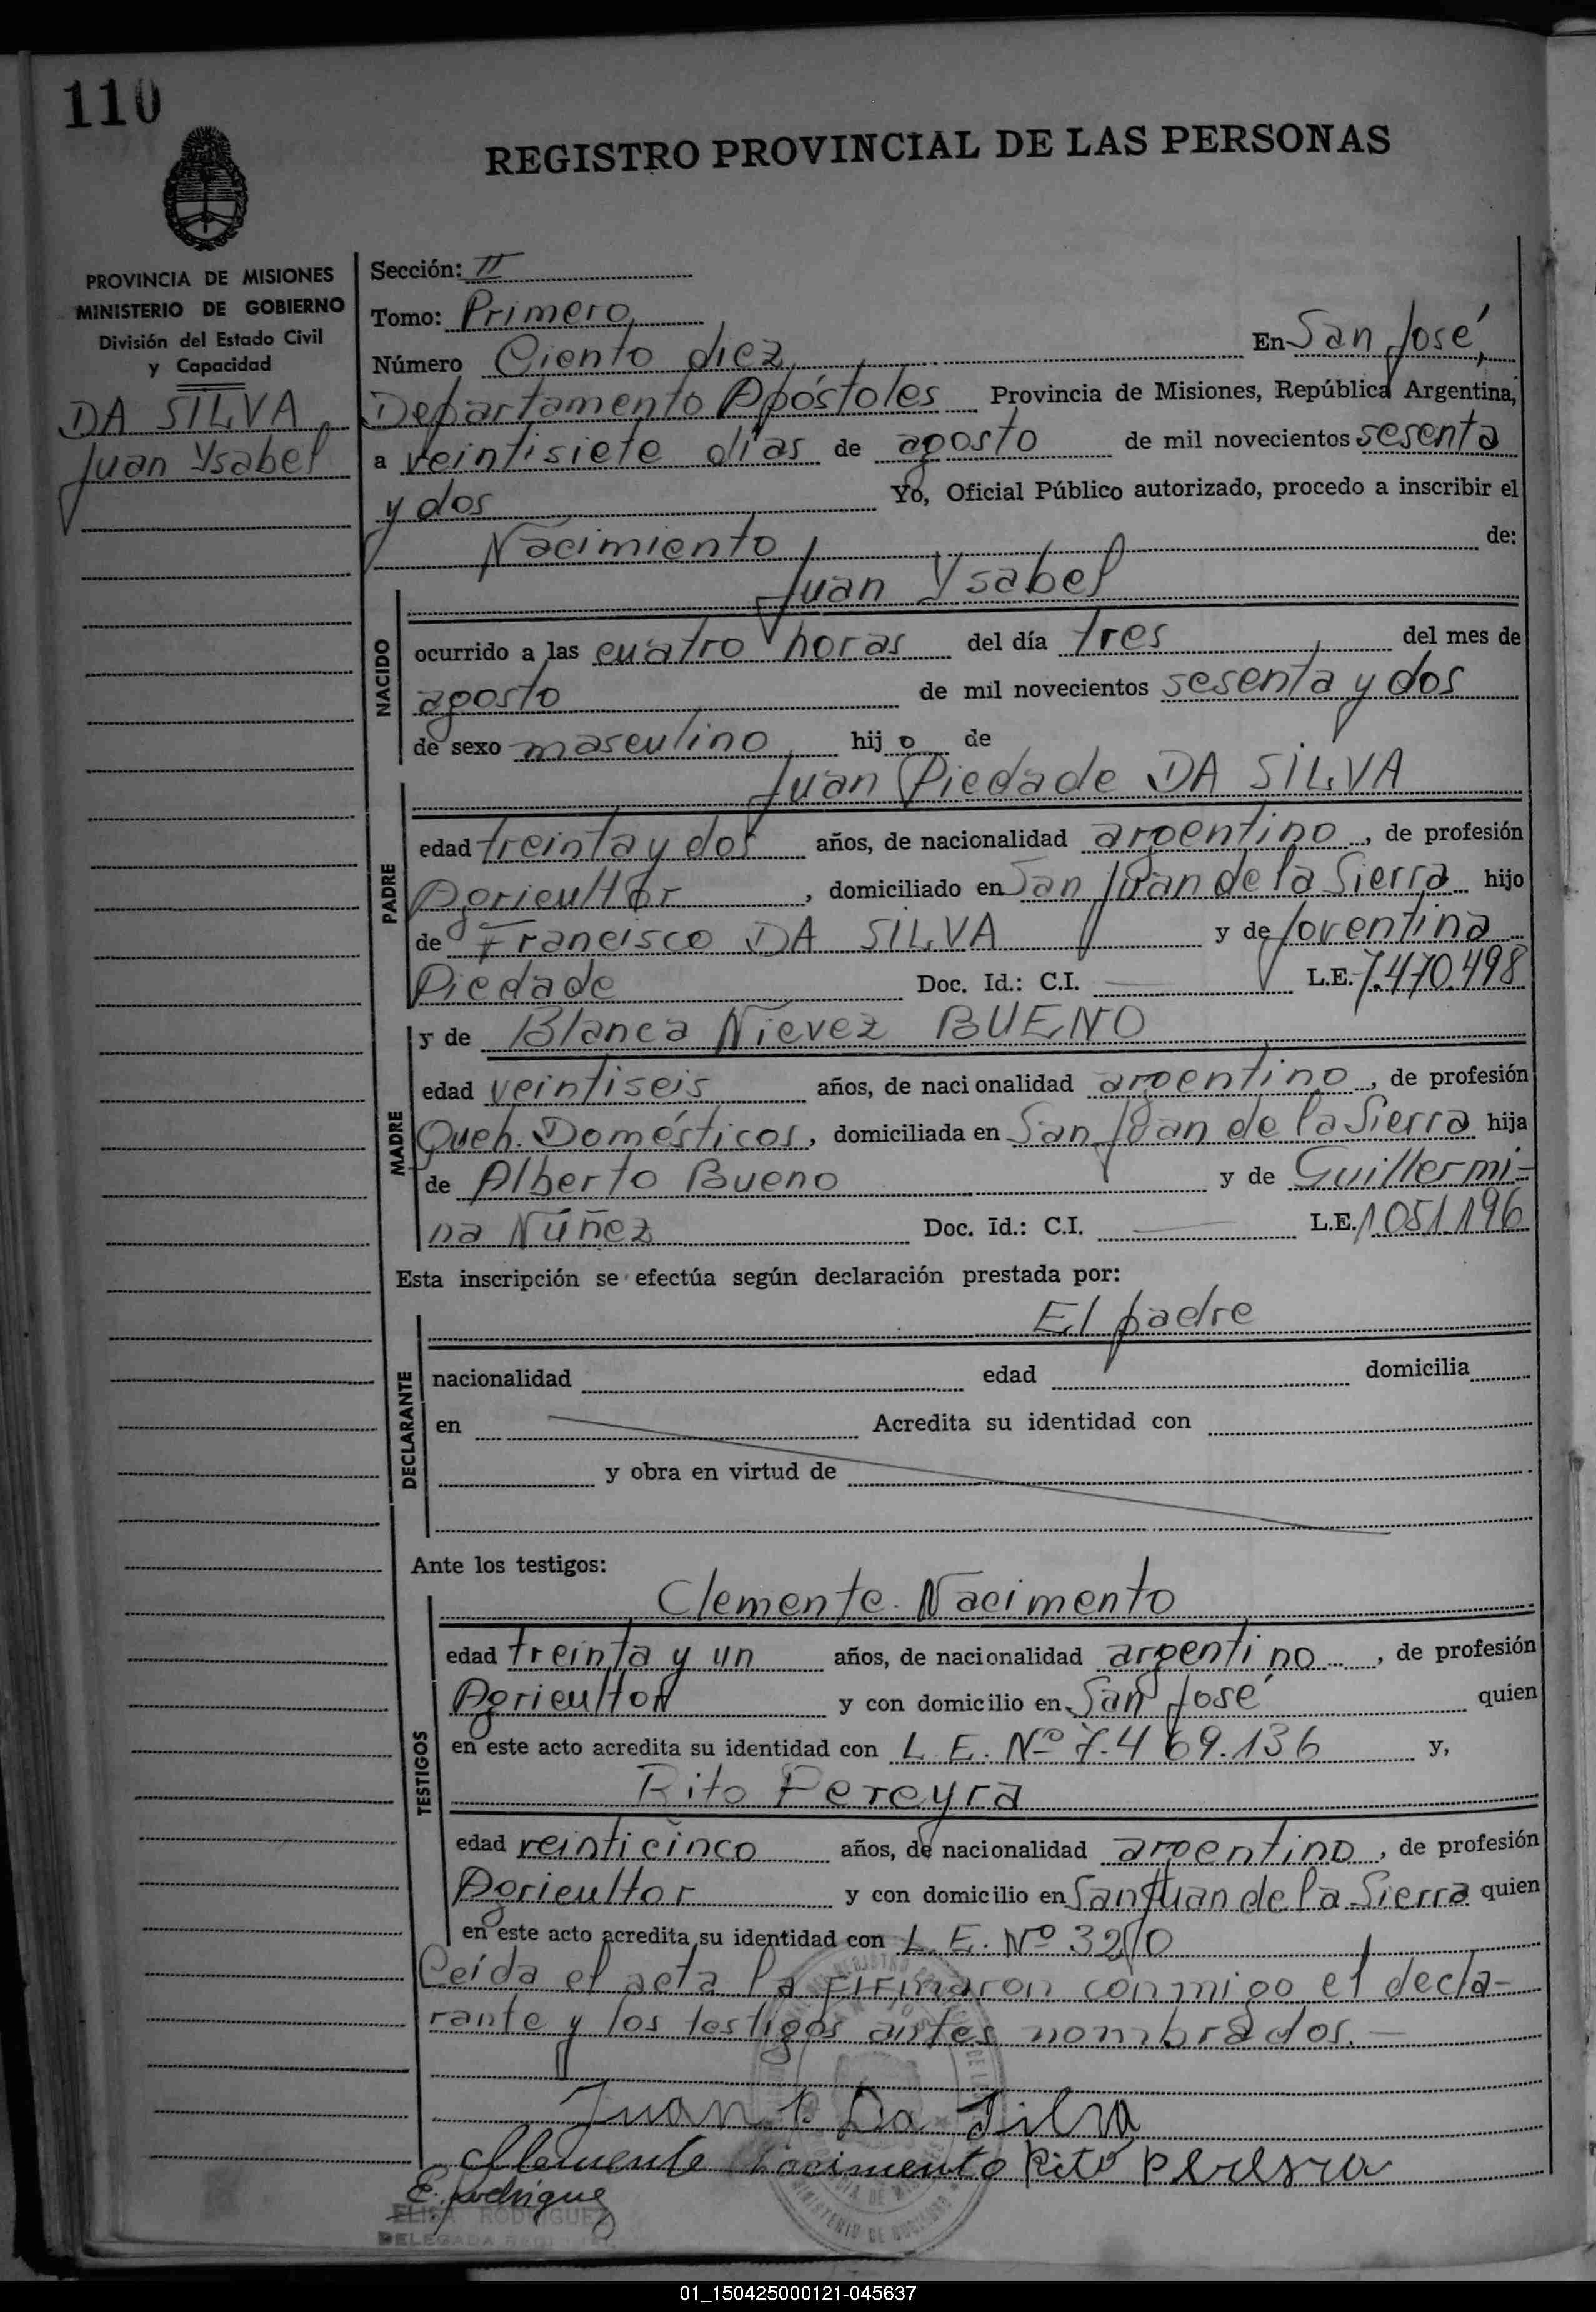 110
REGISTRO PROVINCIAL DE LAS PERSONAS
PROVINCIA DE MISIONES
MINISTERIO DE GOBIERNO
División del Estado Civil
y Capacidad
DA SILVA
Juan Ysabel
Sección: II
Tomo: Primero
Número Ciento diez, En San José,
Departamento Apóstoles Provincia de Misiones, República Argentina,
a veintisiete días de agosto de mil novecientos sesenta
y dos Yo, Oficial Público autorizado, procedo a inscribir el
Nacimiento de:
NACIDO
Juan Ysabel
ocurrido a las cuatro horas del día tres del mes de
agosto de mil novecientos sesenta y dos
de sexo masculino hijo de
PADRE
Juan Piedade DA SILVA
edad treinta y dos años, de nacionalidad argentino, de profesión
Agricultor, domiciliado en San Juan de la Sierra hijo
de Francisco DA SILVA y de Joventina
Piedade Doc. Id.: C.I. L.E. 7.470.498
MADRE
y de Blanca Nievez BUENO
edad veintiseis años, de nacionalidad argentino, de profesión
Queh. Domésticos, domiciliada en San Juan de la Sierra hija
de Alberto Bueno y de Guillermi-
na Núñez Doc. Id.: C.I. L.E. 1.051.196
Esta inscripción se efectúa según declaración prestada por:
DECLARANTE
El padre
nacionalidad edad domicilia
en Acredita su identidad con
y obra en virtud de
Ante los testigos:
TESTIGOS
Clemente Nacimento
edad treinta y un años, de nacionalidad argentino, de profesión
Agricultor y con domicilio en San José quien
en este acto acredita su identidad con L. E. Nº 7.469.136 y,
Rito Pereyra
edad veinticinco años, de nacionalidad argentino, de profesión
Agricultor y con domicilio en San Juan de la Sierra quien
en este acto acredita su identidad con L. E. Nº
Leída el acta la firmaron conmigo el decla-
rante y los testigos antes nombrados.-
Juan P. Da Silva
Clemente Nacimento Rito Pereyra
E. Rodriguez
ELISA RODRIGUEZ
DELEGADA
01_150425000121-045637